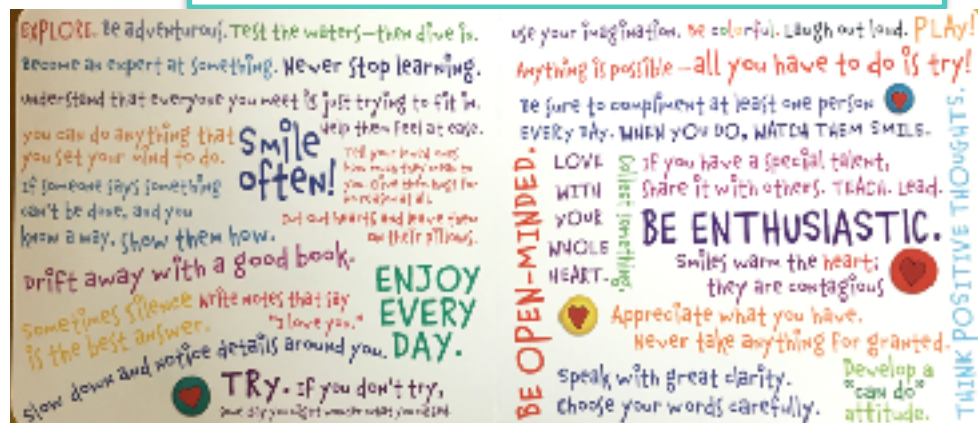 EXPLORE. Be adventurous. Test the waters—then dive in.
Become an expert at something. Never stop learning.
understand that everyone you meet is just trying to fit in.
Help them feel at ease.
you can do anything that
you set your mind to do.
Smile
often!
Tell your loved ones
how much they mean to
you. Give them hugs for
no reason at all.
If someone says something
can't be done, and you
know a way, show them how.
Cut out hearts and leave them
on their pillows.
Drift away with a good book.
ENJOY
EVERY
DAY.
Sometimes silence
is the best answer.
Write notes that say
"I love you."
Slow down and notice details around you.
TRY. If you don't try,
use your imagination. Be colorful. Laugh out loud. PLAY!
Anything is possible—all you have to do is try!
Be sure to compliment at least one person
EVERY DAY. WHEN YOU DO, WATCH THEM SMILE.
BE OPEN-MINDED.
LOVE
WITH
YOUR
WHOLE
HEART.
Collect something.
If you have a special talent,
share it with others. TEACH. Lead.
BE ENTHUSIASTIC.
Smiles warm the heart;
they are contagious
Appreciate what you have.
Never take anything for granted.
Speak with great clarity.
Choose your words carefully.
Develop a
"can do"
attitude.
THINK POSITIVE THOUGHTS.